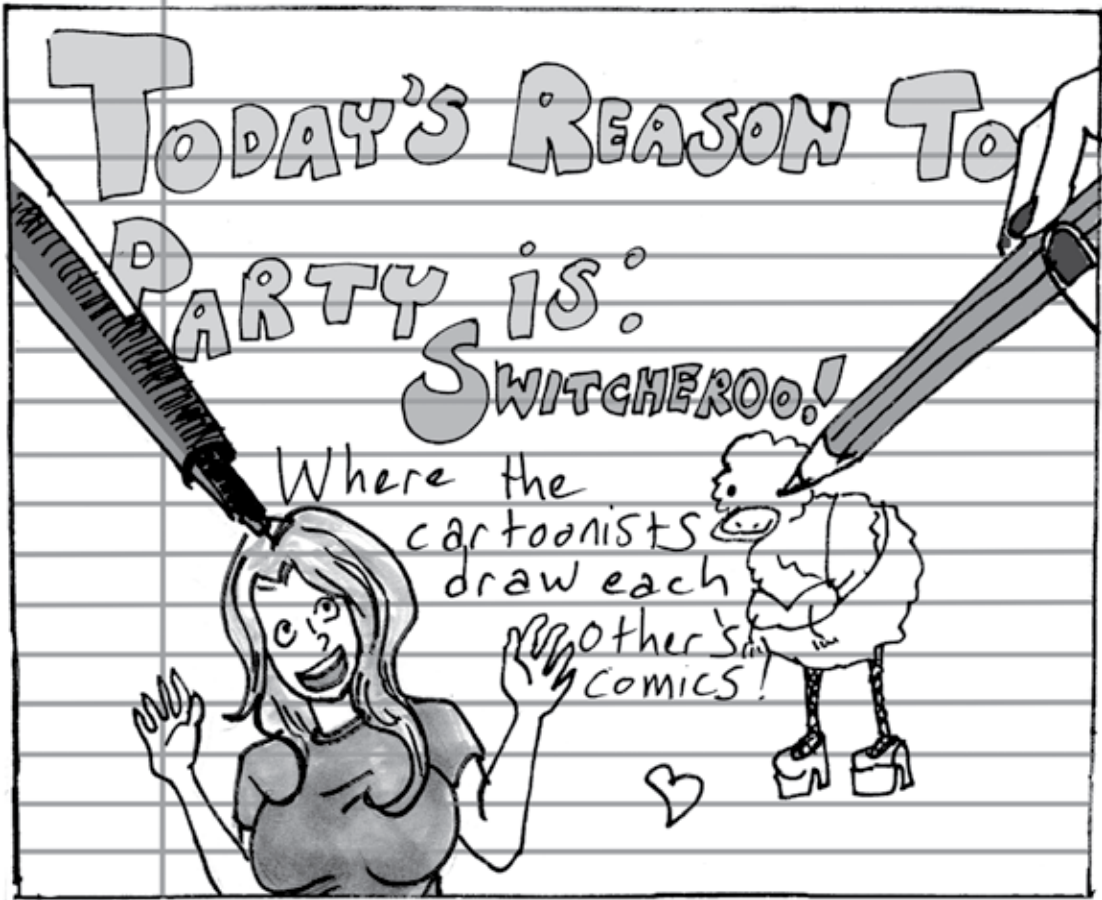 TODAY'S REASON TO
PARTY iS:
SWITCHEROO!
Where the
cartoonists
draw each
other's
comics!